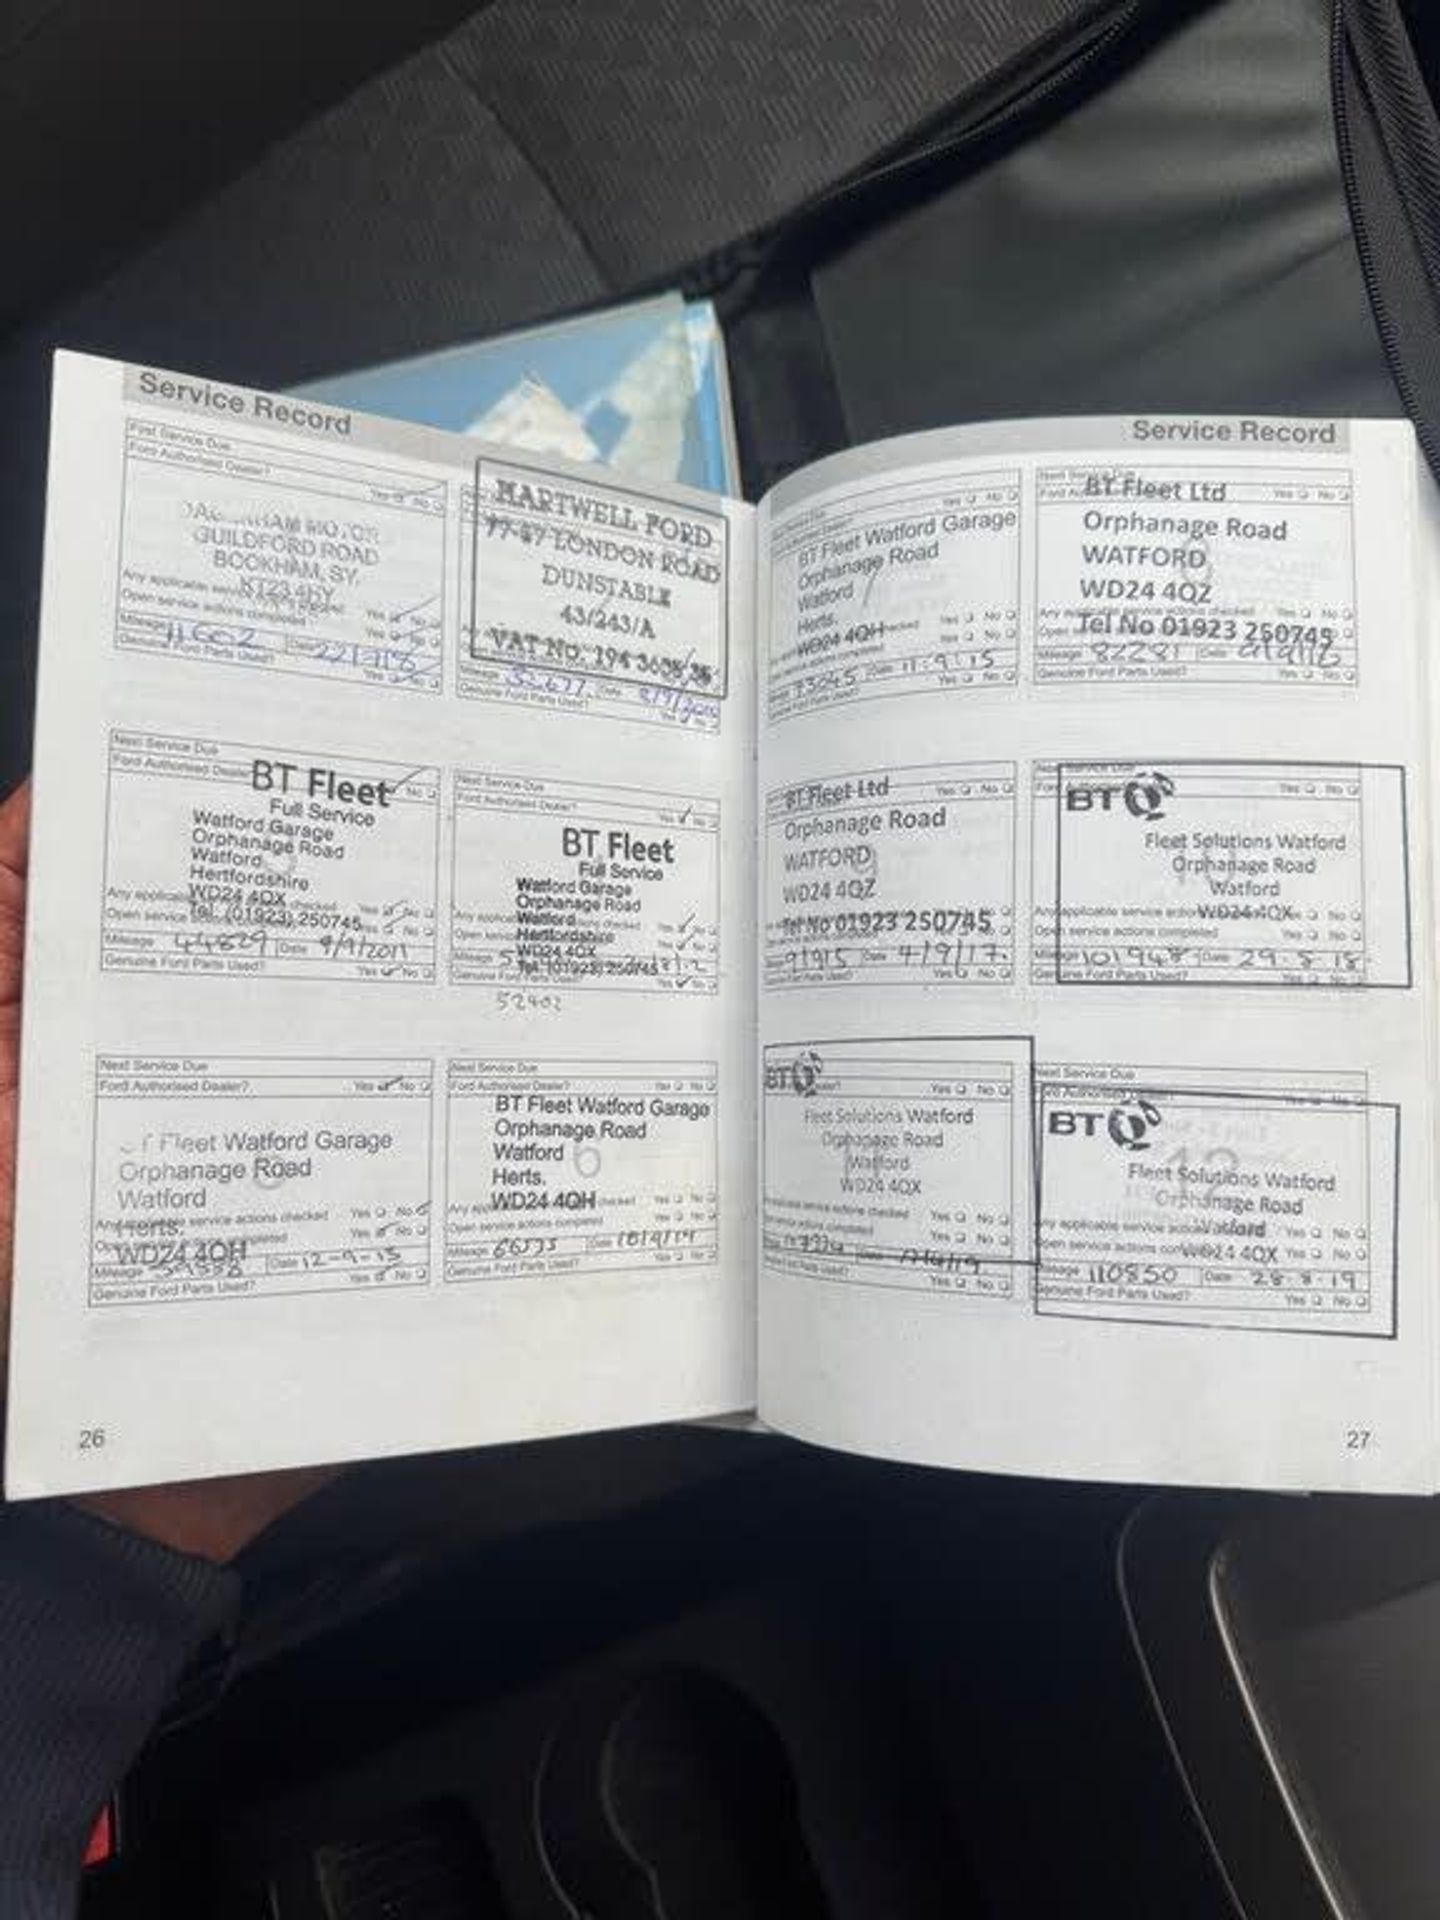 Service Record
First Service Due
Ford Authorised Dealer?
Yes No
GUILDFORD ROAD
BOOKHAM, SY.
KT23 4HY
Any applicable service
Open service actions completed
Yes No
Yes No
Mileage 11602 Date
Genuine Ford Parts Used?
Yes No
HARTWELL FORD
77-87 LONDON ROAD
DUNSTABLE
43/243/A
VAT No. 194
Mileage 32677 Date
Genuine Ford Parts Used?
Next Service Due
Ford Authorised Dealer
No
BT Fleet
Full Service
Watford Garage
Orphanage Road
Watford
Hertfordshire
WD24 4QX
Tel: (01923) 250745
Any applicable checked Yes No
Open service Yes No
Mileage 44829 Date 9/9/2011
Genuine Ford Parts Used? Yes No
Next Service Due
Ford Authorised Dealer?
Yes No
BT Fleet
Full Service
Watford Garage
Orphanage Road
Watford
Hertfordshire
WD24 4QX
Tel: (01923) 250745
Genuine Ford Parts Used? Yes No
52902
Next Service Due
Ford Authorised Dealer? Yes No
Fleet Watford Garage
Orphanage Road
Watford
Herts.
service actions checked Yes No
WD24 4QH
completed Yes No
Mileage Date 12-9-13
Genuine Ford Parts Used? Yes No
Next Service Due
Ford Authorised Dealer? Yes No
BT Fleet Watford Garage
Orphanage Road
Watford
6
Herts.
WD24 4QH
Any checked Yes No
Open service actions completed Yes No
Mileage 66535 Date
Genuine Ford Parts Used? Yes No
26
Service Record
Yes No
BT Fleet Watford Garage
Orphanage Road
Watford
Herts.
WD24 4QH
checked Yes No
service actions completed Yes No
Date 11.9.15
Genuine Ford Parts Used? Yes No
Next Service Due
BT Fleet Ltd
Yes No
Orphanage Road
WATFORD
WD24 4QZ
Any applicable service actions checked Yes No
Tel No 01923 250745
Mileage 82281 Date
Genuine Ford Parts Used? Yes No
BT Fleet Ltd
Yes No
Orphanage Road
WATFORD
WD24 4QZ
Tel No 01923 250745
91915 Date 4/9/17.
Genuine Ford Parts Used? Yes No
BT
Yes No
Fleet Solutions Watford
Orphanage Road
Watford
WD24 4QX
Any applicable service Yes No
Open service actions completed
Mileage 101948 Date 29.8.18
Genuine Ford Parts Used? Yes No
BT
Yes No
Fleet Solutions Watford
Orphanage Road
Watford
WD24 4QX
applicable service actions checked Yes No
service actions completed Yes No
Genuine Ford Parts Used? Yes No
Next Service Due
Ford Authorised
BT
12
Fleet Solutions Watford
Orphanage Road
Watford
WD24 4QX
Any applicable service Yes No
Open service actions Yes No
Mileage 110850 Date 28.8.19
Genuine Ford Parts Used? Yes No
27